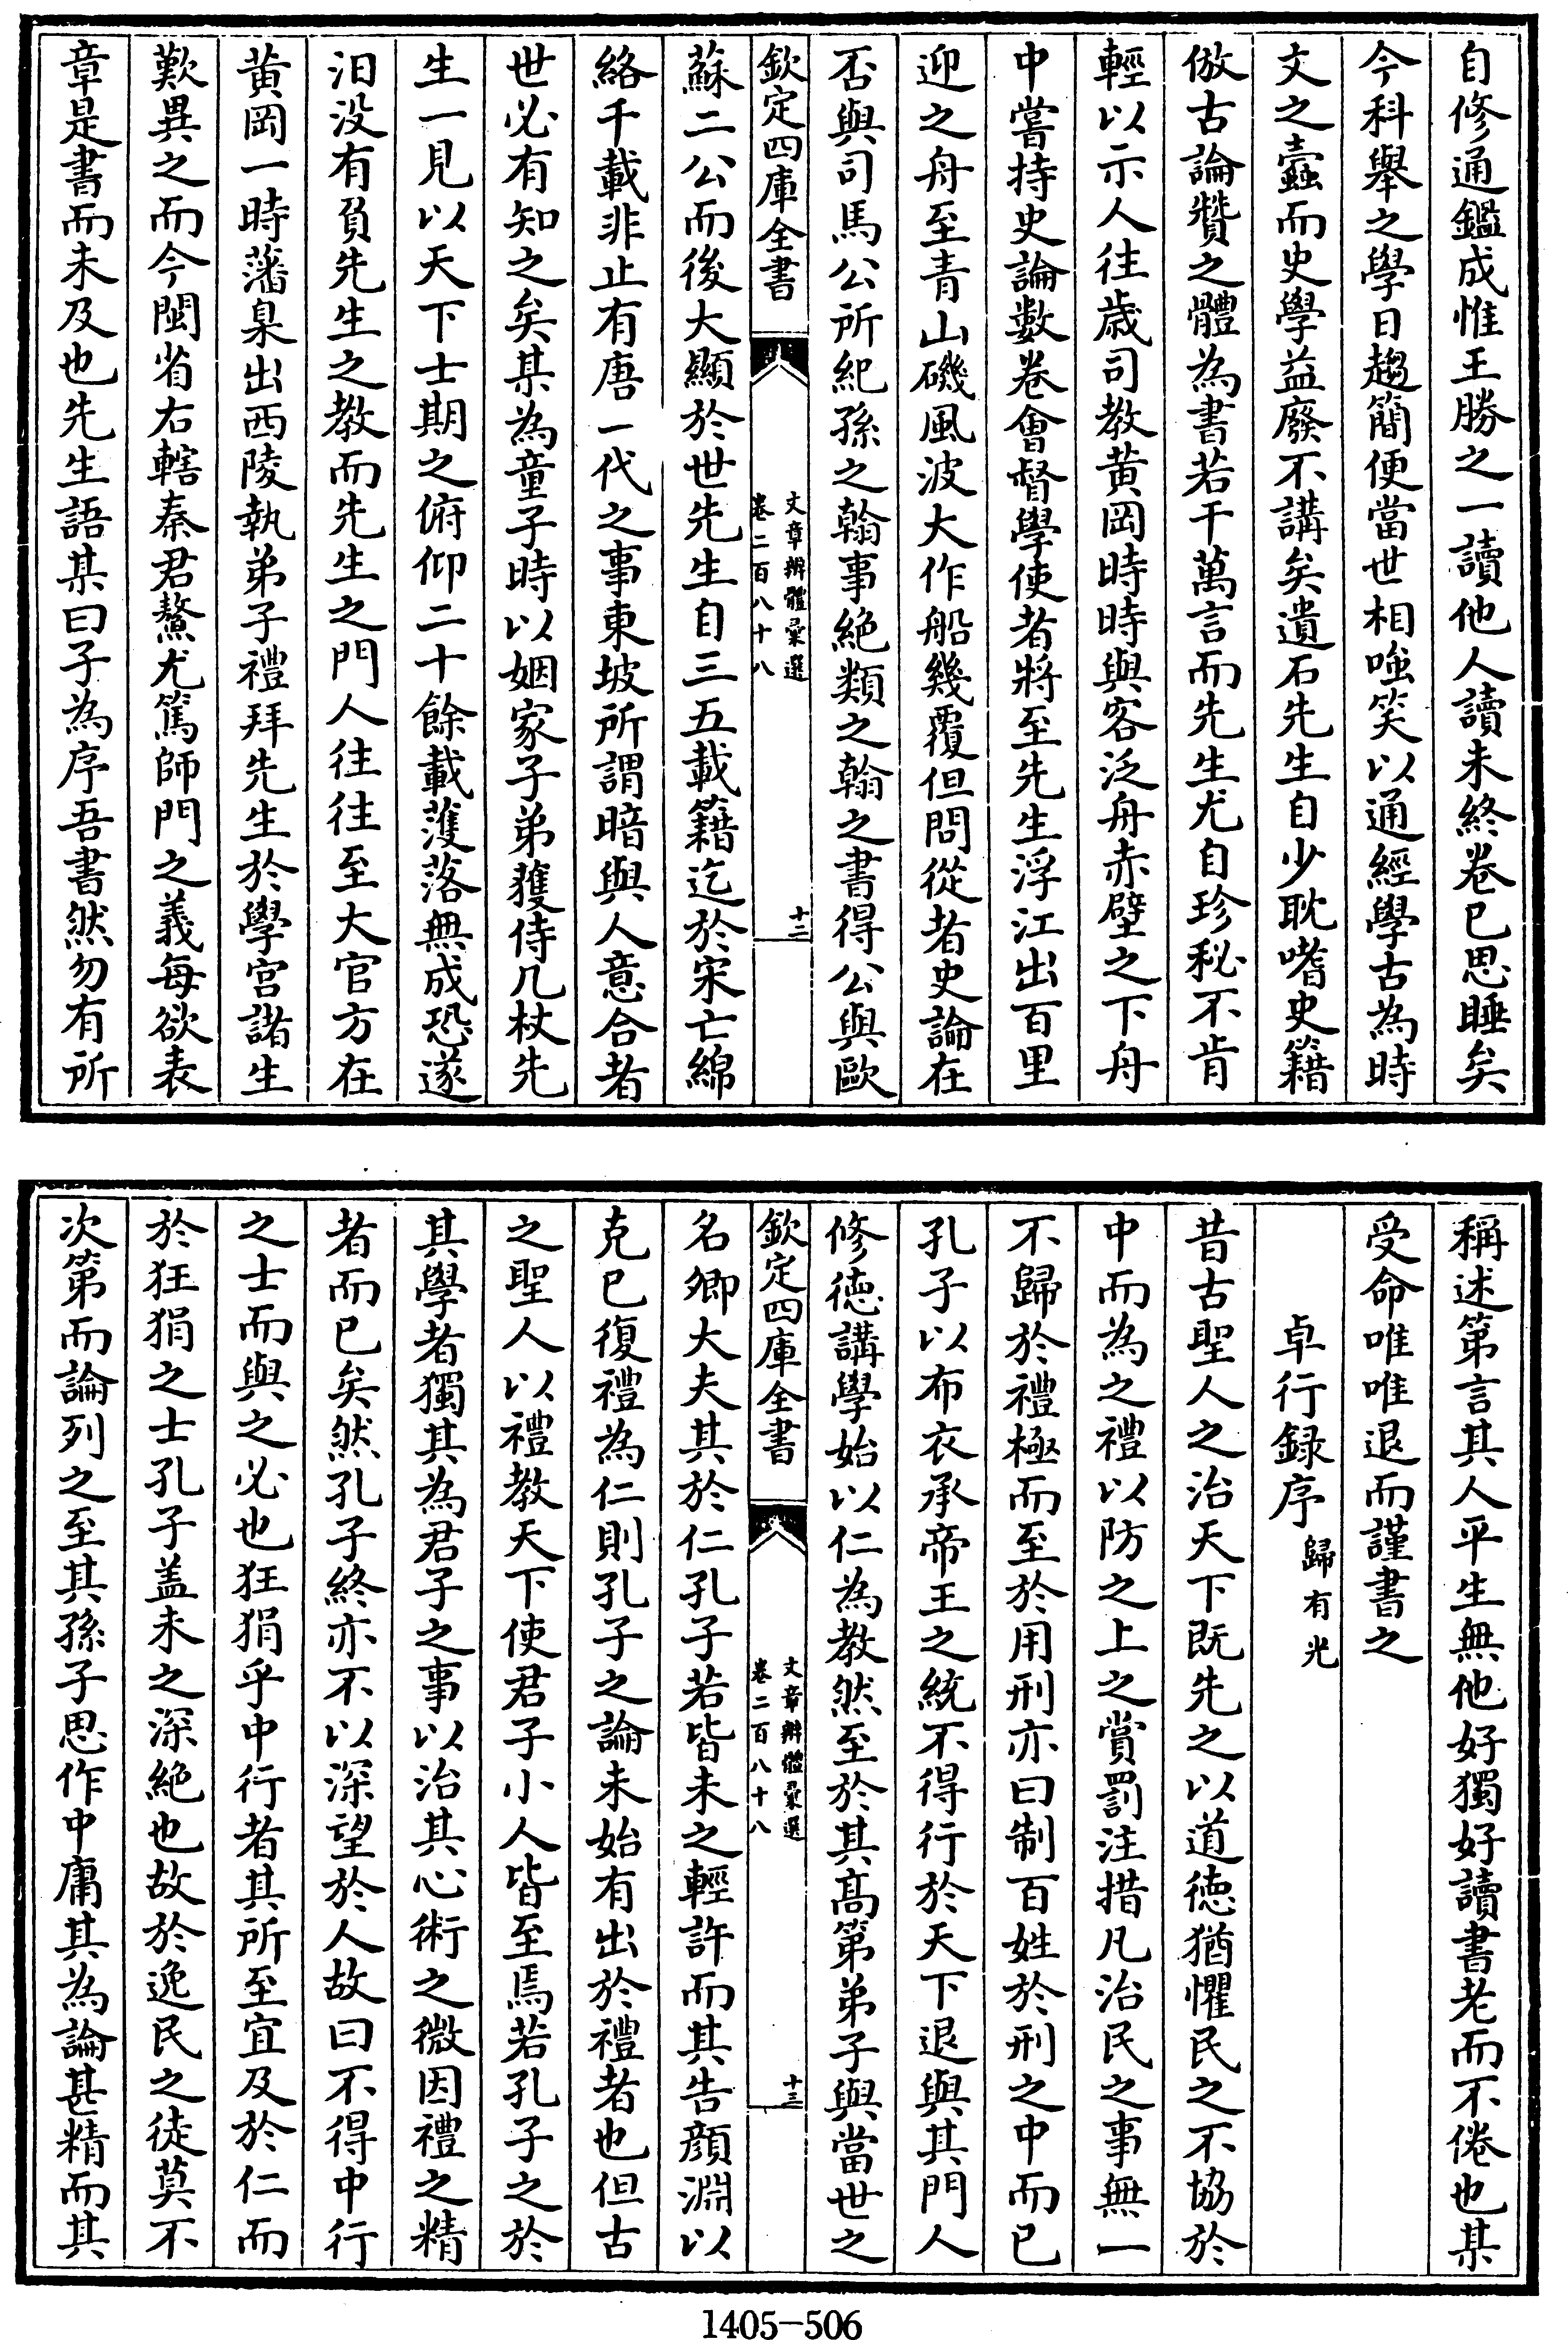 自修通鑑成惟王勝之一讀他人讀未終卷已思睡矣
今科舉之學日趨簡便當世相嗤笑以通經學古為時
文之蠹而史學益廢不講矣遺石先生自少耽嗜史籍
倣古論贊之體為書若干萬言而先生尤自珍秘不肯
輕以示人往歲司教黄岡時時與客泛舟赤壁之下舟
中嘗持史論數卷會督學使者將至先生浮江出百里
迎之舟至青山磯風波大作船幾覆但問從者史論在
否與司馬公所紀孫之翰事絶類之翰之書得公與歐
欽定四庫全書
文章辨體彙選
卷二百八十八
十二
蘇二公而後大顯於世先生自三五載籍迄於宋亡綿
絡千載非止有唐一代之事東坡所謂暗與人意合者
世必有知之矣某為童子時以姻家子弟獲侍几杖先
生一見以天下士期之俯仰二十餘載濩落無成恐遂
汨没有負先生之教而先生之門人往往至大官方在
黄岡一時藩臬出西陵執弟子禮拜先生於學宫諸生
歎異之而今閩省右轄秦君鰲尤篤師門之義每欲表
章是書而未及也先生語某曰子為序吾書然勿有所
稱述第言其人平生無他好獨好讀書老而不倦也某
受命唯唯退而謹書之
卓行録序 歸有光
昔古聖人之治天下既先之以道德猶懼民之不協於
中而為之禮以防之上之賞罰注措凡治民之事無一
不歸於禮極而至於用刑亦曰制百姓於刑之中而已
孔子以布衣承帝王之統不得行於天下退與其門人
修德講學始以仁為教然至於其高第弟子與當世之
欽定四庫全書
文章辨體彙選
卷二百八十八
十三
名卿大夫其於仁孔子若皆未之輕許而其告顔淵以
克已復禮為仁則孔子之論未始有出於禮者也但古
之聖人以禮教天下使君子小人皆至焉若孔子之於
其學者獨其為君子之事以治其心術之微因禮之精
者而已矣然孔子終亦不以深望於人故曰不得中行
之士而與之必也狂狷乎中行者其所至宜及於仁而
於狂狷之士孔子盖未之深絶也故於逸民之徒莫不
次第而論列之至其孫子思作中庸其為論甚精而其
1405-506